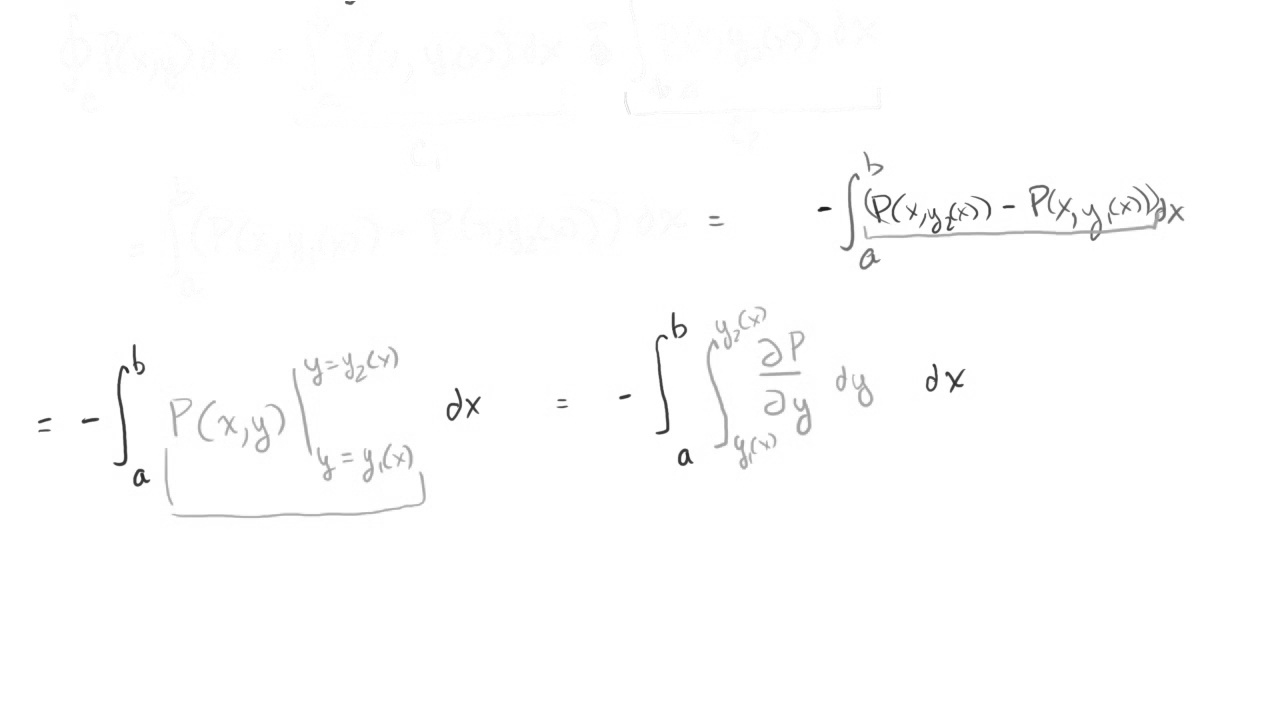 ∮_C P(x,y) dx = ∫_a P(x, y₁(x)) dx ∫_b^a P(x, y₂(x)) dx
C₁ C₂
= ∫_a^b (P(x, y₁(x)) - P(x, y₂(x))) dx = - ∫_a^b (P(x, y₂(x)) - P(x, y₁(x))) dx
= - ∫_a^b P(x,y) |_{y = y₁(x)}^{y = y₂(x)} dx = - ∫_a^b ∫_{y₁(x)}^{y₂(x)} ∂P/∂y dy dx